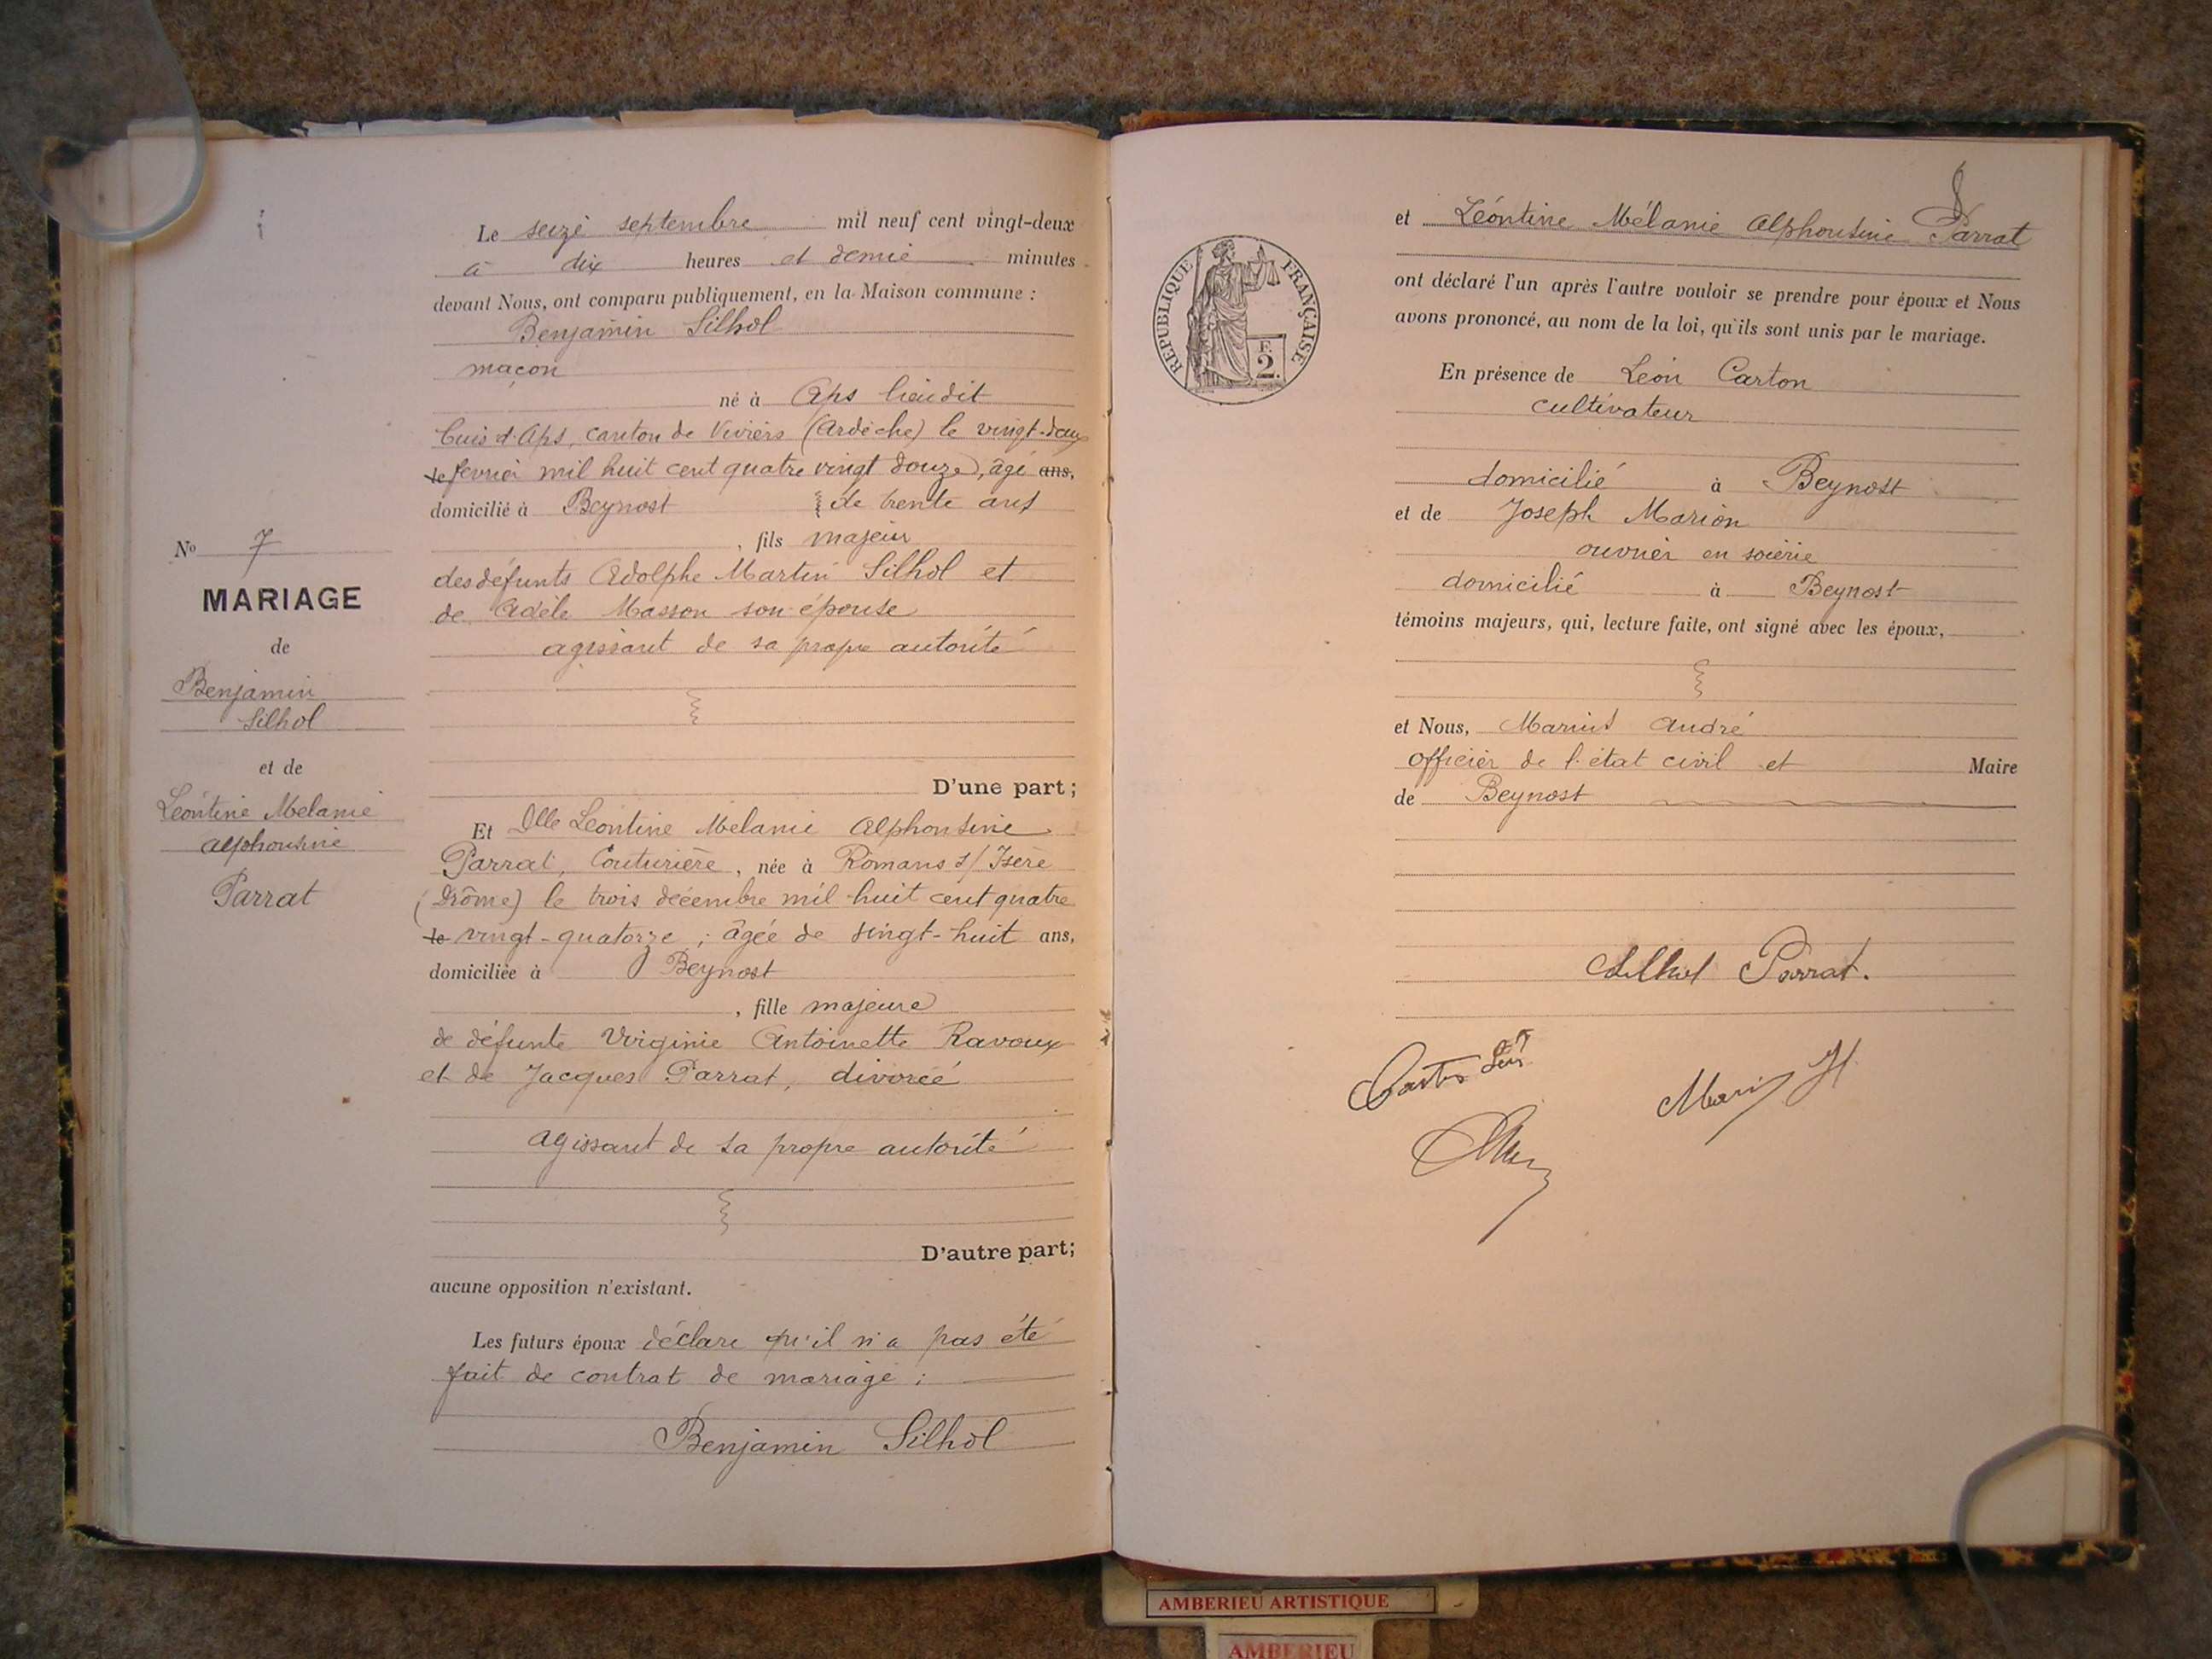 Le seize septembre mil neuf cent vingt-deux
à dix heures et demie minutes
devant Nous, ont comparu publiquement, en la Maison commune :
Benjamin Silhol
maçon
né à Aps lieudit
d'Aps, canton de Viviers (Ardèche) le vingt-deux
le fevrier mil huit cent quatre vingt douze, âgé ans,
domicilié à Beynost de trente ans
, fils majeur
des défunts Adolphe Martin Silhol et
de Adèle Masson son épouse
agissant de sa propre autorité
D'une part ;
Et Dlle Léontine Mélanie Alphonsine
Parrat, Couturière, née à Romans s/ Isère
(Drôme) le trois décembre mil huit cent quatre
le vingt-quatorze ; âgée de vingt-huit ans,
domiciliée à Beynost
, fille majeure
de défunte Virginie Antoinette Ravoux
et de Jacques Parrat, divorcé
agissant de sa propre autorité
D'autre part ;
aucune opposition n'existant.
Les futurs époux déclare qu'il n'a pas été
fait de contrat de mariage ;
Benjamin Silhol
No 7
MARIAGE
de
Benjamin
Silhol
et de
Léontine Melanie
alphonsine
Parrat
et Léontine Mélanie Alphonsine Parrat
ont déclaré l'un après l'autre vouloir se prendre pour époux et Nous
avons prononcé, au nom de la loi, qu'ils sont unis par le mariage.
En présence de Léon Carton
cultivateur
domicilié à Beynost
et de Joseph Marion
ouvrier en soierie
domicilié à Beynost
témoins majeurs, qui, lecture faite, ont signé avec les époux,
et Nous, Marius André
officier de l'état civil et Maire
de Beynost
Silhol Parrat.
RÉPUBLIQUE FRANÇAISE
F.
2.
AMBERIEU ARTISTIQUE
AMBERIEU